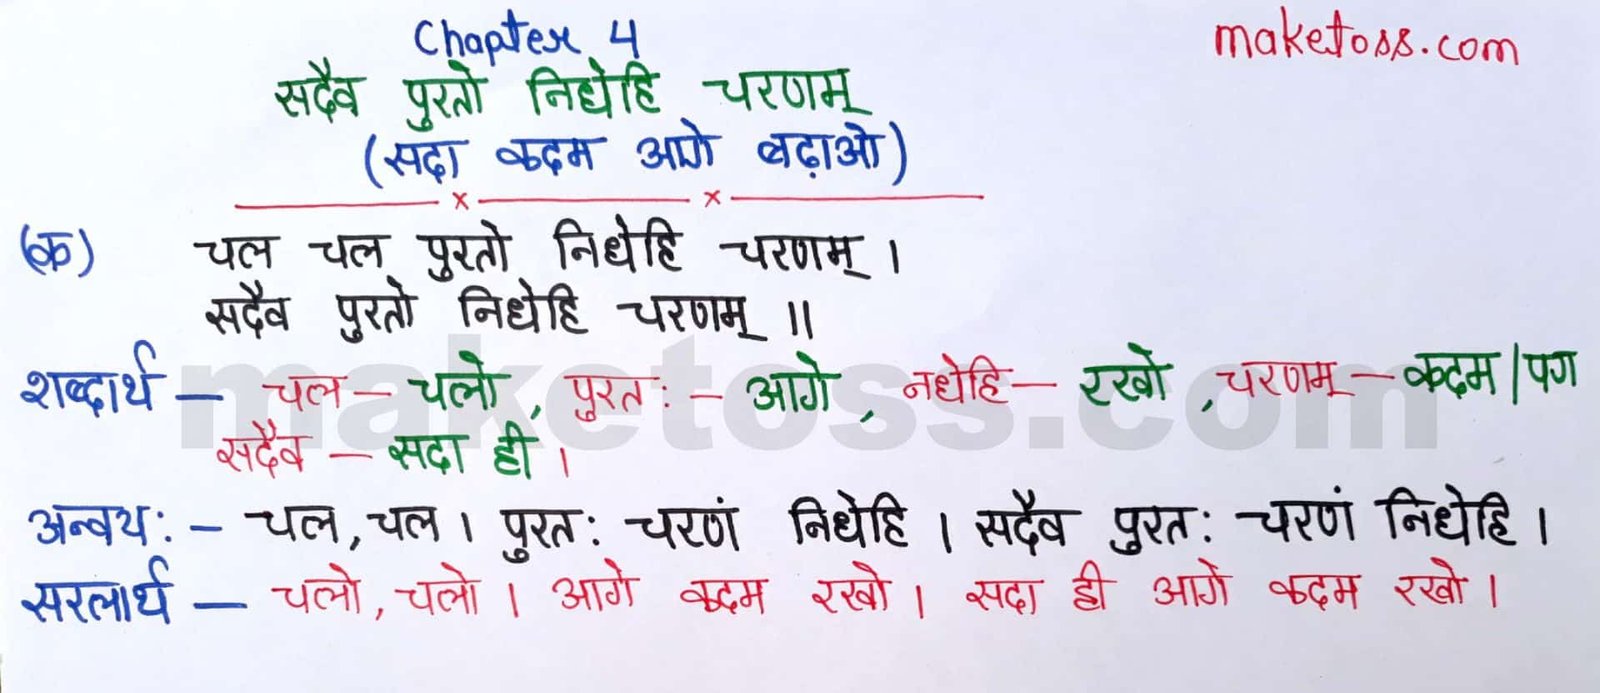 Chapter 4
maketoss.com
सदैव पुरतो निधेहि चरणम्
(सदा कदम आगे बढ़ाओ)
(क) चल चल पुरतो निधेहि चरणम् ।
सदैव पुरतो निधेहि चरणम् ॥
शब्दार्थ — चल – चलो, पुरत: – आगे, नधेहि – रखो, चरणम् – कदम/पग
सदैव – सदा ही ।
अन्वय: – चल, चल । पुरत: चरणं निधेहि । सदैव पुरत: चरणं निधेहि ।
सरलार्थ — चलो, चलो । आगे कदम रखो । सदा ही आगे कदम रखो ।
maketoss.com